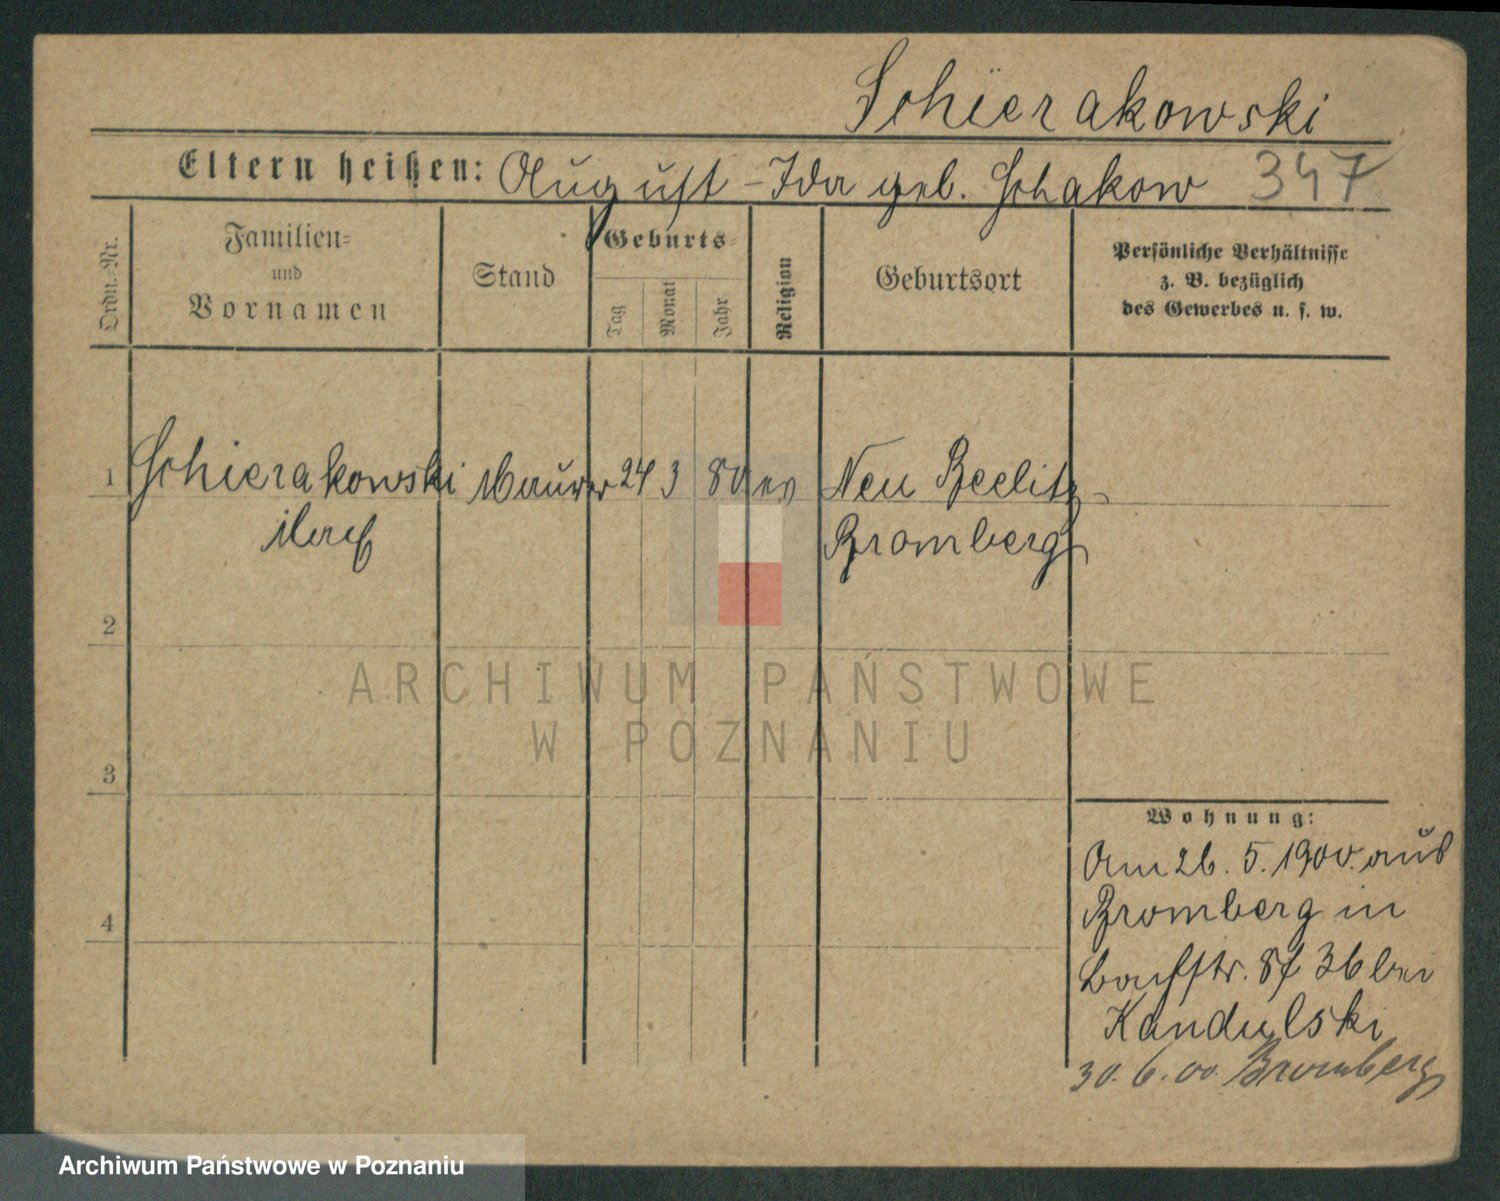 Schierakowski
Eltern heißen: August - Ida geb. Schakow 347
Ordn.-Nr.
Familien-
und
Vornamen
Stand
Geburts-
Tag
Monat
Jahr
Religion
Geburtsort
Persönliche Verhältnisse
z. B. bezüglich
des Gewerbes u. s. w.
1 Schierakowski Maurer 24 3 80 ev Neu Beelitz
Bromberg
2
ARCHIWUM PAŃSTWOWE
W POZNANIU
3
4
Wohnung:
Am 26. 5. 1900. aus
Bromberg in
36 bei
Kandulski
30. 6. 00. Bromberg
Archiwum Państwowe w Poznaniu